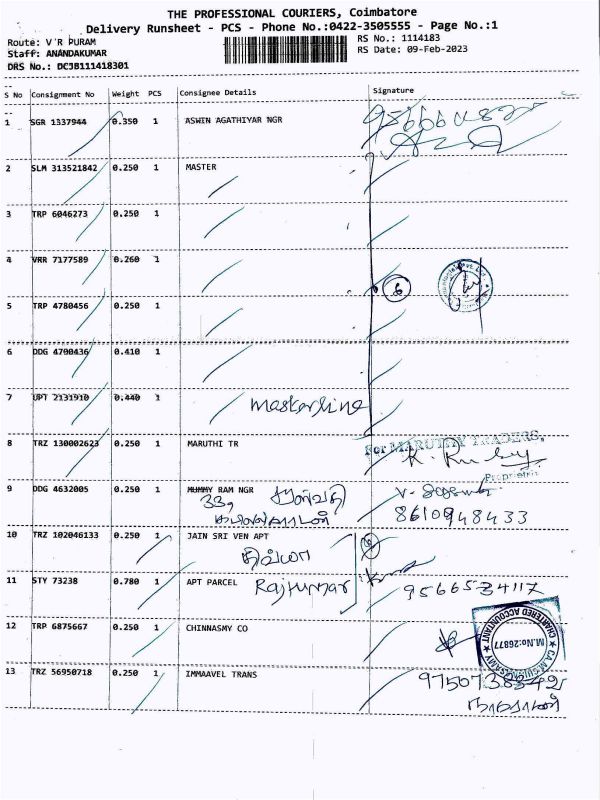 THE PROFESSIONAL COURIERS, Coimbatore
Delivery Runsheet - PCS - Phone No.:0422-3505555 - Page No.:1
Route: V R PURAM
Staff: ANANDAKUMAR
DRS No.: DCJB111418301
RS No.: 1114183
RS Date: 09-Feb-2023
S No Consignment No Weight PCS Consignee Details Signature
1 SGR 1337944 0.350 1 ASWIN AGATHIYAR NGR
2 SLM 313521842 0.250 1 MASTER
3 TRP 6046273 0.250 1
4 VRR 7177589 0.260 1
6
5 TRP 4780456 0.250 1
6 DDG 4700436 0.410 1
7 UPT 2131910 0.440 1 Masterline
8 TRZ 130002623 0.250 1 MARUTHI TR
For MARUTHY TRADERS,
K. Ruby
Proprietrix
9 DDG 4632005 0.250 1 MUMMY RAM NGR
33,
8610948433
10 TRZ 102046133 0.250 1 JAIN SRI VEN APT
திவ்யா
11 STY 73238 0.780 1 APT PARCEL Rajkumar 9566534117
12 TRP 6875667 0.250 1 CHINNASMY CO
CHARTERED ACCOUNTANT
M.No:26877
13 TRZ 56950718 0.250 1 IMMAAVEL TRANS
நாராயணன்